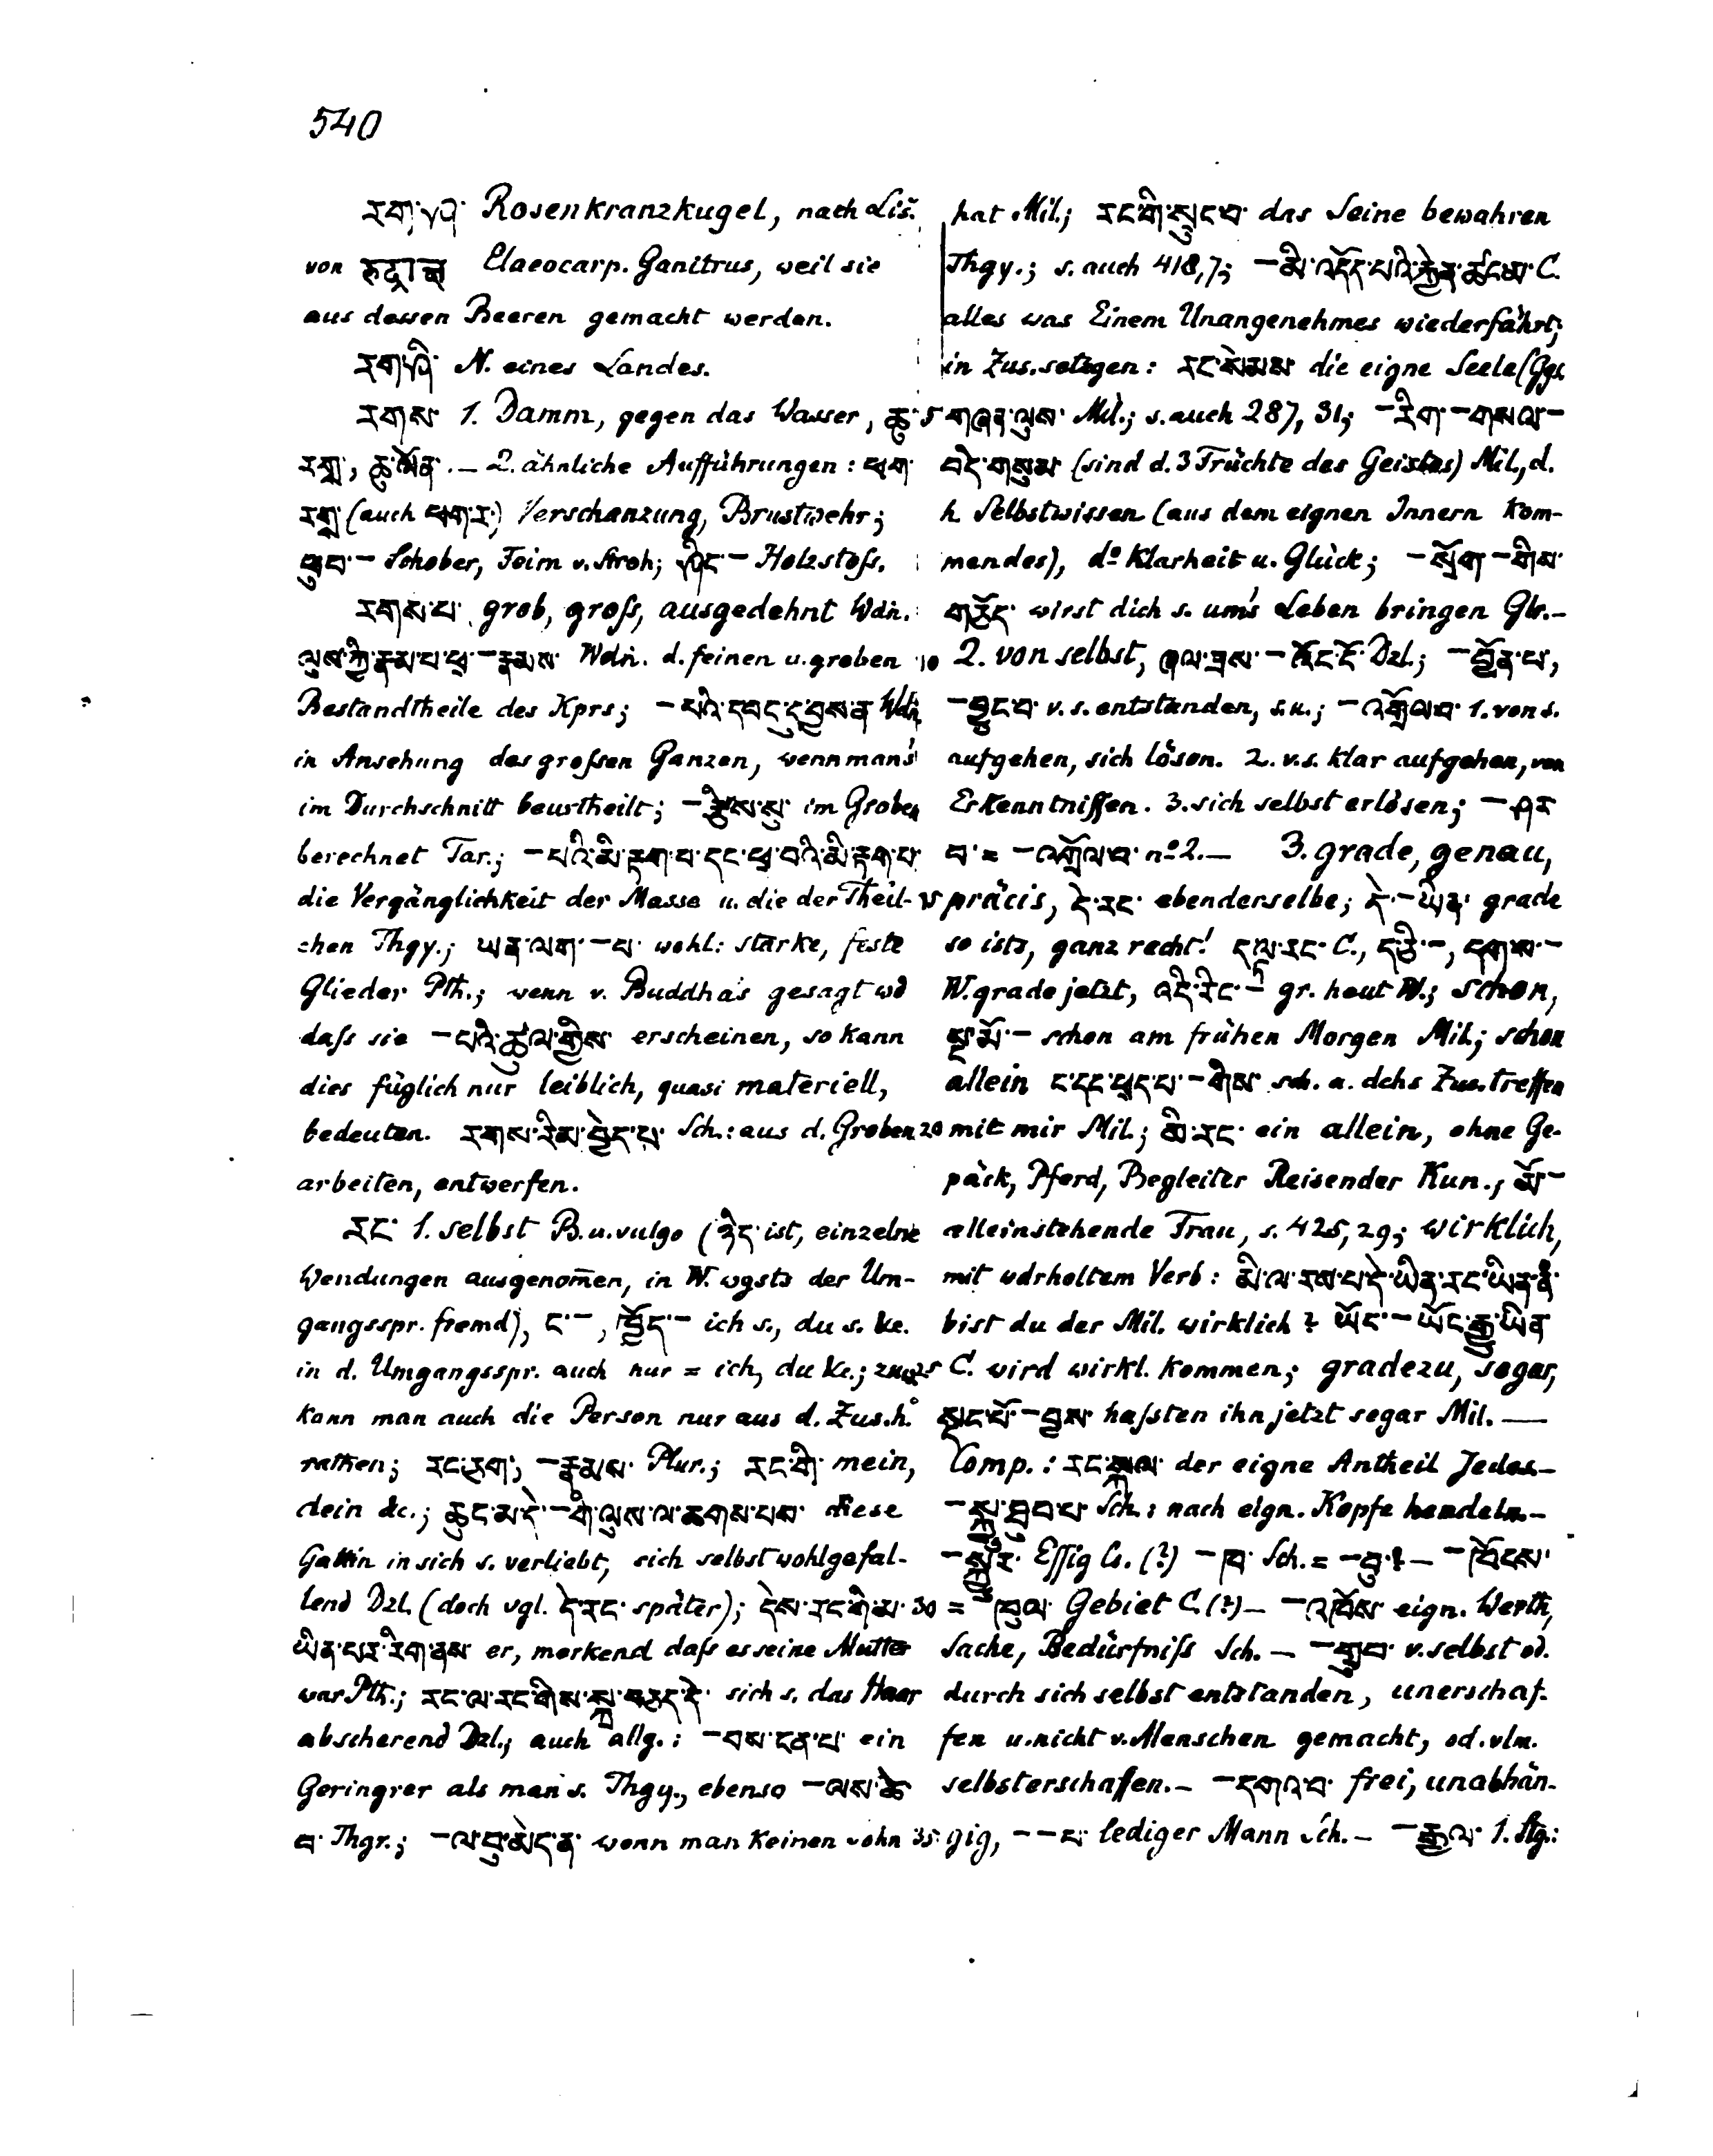 540
རག་ཤ་ Rosenkranzkugel, nach Liš.
von रुद्राक्ष Elaeocarp. Ganitrus, weil sie
aus dessen Beeren gemacht werden.
རག་ཤི་ N. eines Landes.
རགས་ 1. Damm, gegen das Wasser, ཆུ་
རགས་, ཆུ་ལོན་. – 2. ähnliche Aufführungen: ཕག་
རགས་ (auch ཕག་ར་) Verschanzung, Brustwehr;
ཕུབ་ – Schober, Feim v. Stroh; ཤིང་ – Holzstoß.
རགས་པ་ grob, groß, ausgedehnt Wdṅ.
ལུས་ཀྱི་རྣམ་པ་ཕྲ་ – རྣམས་ Wdṅ. d. feinen u. groben
Bestandtheile des Kprs; – པའི་དབང་དུ་བྱས་ན་ Wdṅ.
in Ansehung des großen Ganzen, wenn man's
im Durchschnitt beurtheilt; – རྩིས་སུ་ im Groben
berechnet Tar.; – པའི་མི་རྟག་པ་དང་ཕྲ་བའི་མི་རྟག་པ་
die Vergänglichkeit der Masse u. die der Theil-
chen Thgy.; ཡན་ལག་ – པ་ wohl: starke, feste
Glieder Pth.; wenn v. Buddha's gesagt wd
daß sie – པའི་ཚུལ་གྱིས་ erscheinen, so kann
dies füglich nur leiblich, quasi materiell,
bedeuten. རགས་རིམ་བྱེད་པ་ Sch.: aus d. Groben
arbeiten, entwerfen.
རང་ 1. selbst B. u. vulgo (ཉིད་ ist, einzelne
Wendungen ausgenom̄en, in W. wgsts der Um-
gangsspr. fremd), ང་ –, ཁྱོད་ – ich s., du s. &c.
in d. Umgangsspr. auch nur = ich, du &c.;
kann man auch die Person nur aus d. Zus.h.
rathen; རང་རག་, – རྣམས་ Plur.; རང་གི་ mein,
dein &c.; ཆུང་མ་དེ་ – གི་ལུས་ལ་ཆགས་པས་ diese
Gattin in sich s. verliebt, sich selbst wohlgefal-
lend Dzl. (doch vgl. དེ་རང་ später); དེས་རང་གི་མ་
ཡིན་པར་རིག་ནས་ er, merkend daß es seine Mutter
war Pth.; རང་ལ་རང་གིས་སྐྲ་བཅད་དེ་ sich s. das Haar
abscherend Dzl.; auch allg.: – བས་དན་པ་ ein
Geringrer als man s. Thgy., ebenso – ལས་ཆེ་
བ་ Thgr.; – ལ་བུ་མེད་ན་ wenn man keinen Sohn
hat Mil.; རང་གི་སྲུང་བ་ das Seine bewahren
Thgy.; s. auch 418,7; – མི་འདོད་པའི་རྐྱེན་ཚང་མ་ C.
alles was Einem Unangenehmes wiederfährt;
in Zus.setzgen: རང་སེམས་ die eigne Seele (Ggs.
5 གཞན་ལུས་ Mil.; s. auch 287, 31; – རིག་ – གསལ་ –
བདེ་གསུམ་ (sind d. 3 Früchte des Geistes) Mil., d.
h. Selbstwissen (aus dem eignen Innern Kom-
mendes), do Klarheit u. Glück; – སྲོག་ – གིས་
གཅོད་ wirst dich s. um's Leben bringen Glr. –
10 2. von selbst, ཞལ་ཟས་ – འོང་ངོ་ Dzl.; – བྱོན་པ་,
– བྱུང་བ་ v. s. entstanden, s.u.; – འགྲོལ་བ་ 1. von s.
aufgehen, sich lösen. 2. v. s. klar aufgehen, von
Erkenntnissen. 3. sich selbst erlösen; – ཤར་
བ་ = – འགྲོལ་བ་ no 2. – 3. grade, genau,
15 präcis, དེ་རང་ ebenderselbe; དེ་ – ཡིན་ grade
so ists, ganz recht! ད་ལྟ་རང་ C., ད་ཅི་ –, དགས་ –
W. grade jetzt, འདི་རིང་ – gr. heut W.; schon,
སྔ་མོ་ – schon am frühen Morgen Mil.; schon
allein ང་དང་ཕྲད་པ་ – གིས་ sch. a. dchs Zus.treffen
20 mit mir Mil.; མི་རང་ ein allein, ohne Ge-
päck, Pferd, Begleiter Reisender Kun.; མོ་ –
alleinstehende Frau, s. 425, 29; wirklich,
mit wdrholtem Verb: མི་ལ་རས་པ་དེ་ཡིན་རང་ཡིན་ནི་
bist du der Mil. wirklich? ཡོང་ – ཡོང་རྒྱུ་ཡིན་
25 C. wird wirkl. kommen; gradezu, sogar,
སྡང་པོ་ – བྱས་ haßten ihn jetzt sogar Mil. —
Comp.: རང་སྐལ་ der eigne Antheil Jedes –
– སྐྲ་ཐུབ་པ་ Sch.: nach eign. Kopfe handeln. –
– སྐྱུར་ Essig Cs. (?) – ཁ་ Sch. = – བུ་? – – ཁོངས་
30 = – ཁུལ་ Gebiet C. (?) – – འཁོས་ eign. Werth,
Sache, Bedürfniß Sch. – – གྲུབ་ v. selbst od.
durch sich selbst entstanden, unerschaf-
fen u. nicht v. Menschen gemacht, od. vlm.
selbsterschaffen. – – དགའ་བ་ frei, unabhän-
35 gig, – – པ་ lediger Mann Sch. – – རྒྱལ་ 1. Stg.: